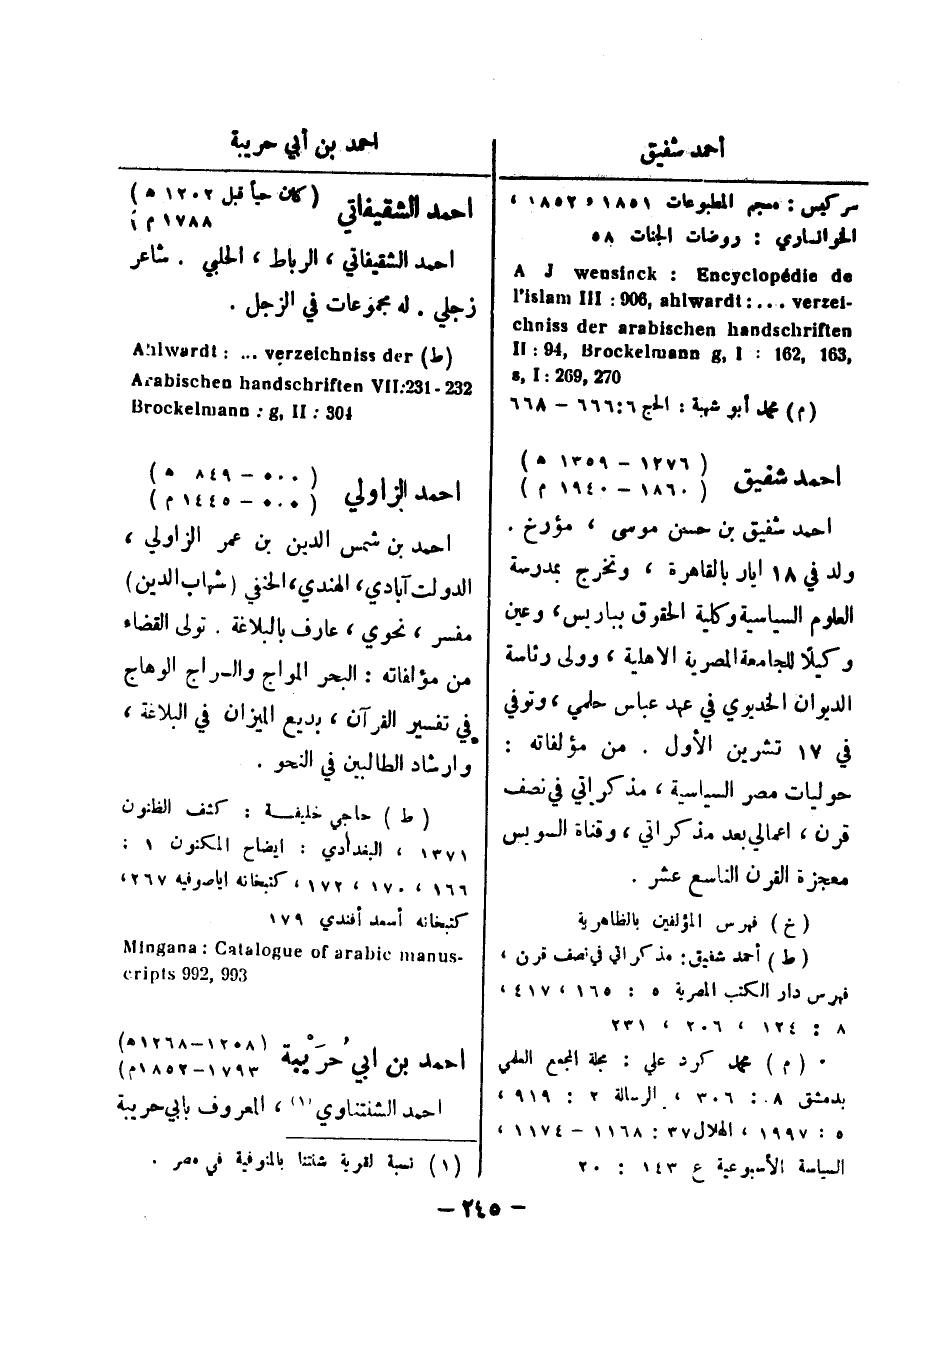 أحمد شفيق
سركيس : معجم المطبوعات ١٨٥١ و ١٨٥٢ ،
الخوانساري : روضات الجنات ٥٨
A J wensinck : Encyclopédie de
l'islam III : 906, ahlwardt : ... verzei-
chniss der arabischen handschriften
II : 94, Brockelmann g, I : 162, 163,
s, I : 269, 270
(م) محمد أبو شهبة : الحج ٦ : ٦٦٦ – ٦٦٨
احمد شفيق
( ١٢٧٦ – ١٣٥٩ ه )
( ١٨٦٠ – ١٩٤٠ م )
احمد شفيق بن حسن موسى ، مؤرخ .
ولد في ١٨ ايار بالقاهرة ، وتخرج بمدرسة
العلوم السياسية وكلية الحقوق بباريس ، وعين
وكيلًا للجامعة المصرية الاهلية ، وولى رئاسة
الديوان الخديوي في عهد عباس حلمي ، وتوفي
في ١٧ تشرين الأول . من مؤلفاته :
حوليات مصر السياسية ، مذكراتي في نصف
قرن ، اعمالي بعد مذكراتي ، وقناة السويس
معجزة القرن التاسع عشر .
(خ) فهرس المؤلفين بالظاهرية
(ط) أحمد شفيق : مذكراتي في نصف قرن ،
فهرس دار الكتب المصرية ٥ : ١٦٥ ، ٤١٧ ،
٨ : ١٢٤ ، ٢٠٦ ، ٢٣١
(م) محمد كرد علي : مجلة المجمع العلمي
بدمشق ٨ : ٣٠٦ ، الرسالة ٢ : ٩١٩ ،
٥ : ١٩٩٧ ، الهلال ٣٧ : ١١٦٨ – ١١٧٤ ،
السياسة الأسبوعية ع ١٤٣ : ٢٠
احمد بن أبي حريبة
احمد الشقيفاتي
( كان حياً قبل ١٢٠٢ ه )
١٧٨٨ م )
احمد الشقيفاتي ، الرباط ، الحلبي . شاعر
زجلي . له مجموعات في الزجل .
(ط) Ahlwardt : ... verzeichniss der
Arabischen handschriften VII:231 - 232
Brockelmann : g, II : 304
احمد الزاولي
( ٠٠٠ – ٨٤٩ ه )
( ٠٠٠ – ١٤٤٥ م )
احمد بن شمس الدين بن عمر الزاولي ،
الدولت آبادي ، الهندي ، الحنفي (شهاب الدين)
مفسر ، نحوي ، عارف بالبلاغة . تولى القضاء
من مؤلفاته : البحر المواج والسراج الوهاج
في تفسير القرآن ، بديع الميزان في البلاغة ،
وارشاد الطالبين في النحو .
( ط ) حاجي خليفة : كشف الظنون
١٣٧١ ، البغدادي : ايضاح المكنون ١ :
١٦٦ ، ١٧٠ ، ١٧٢ ، كتبخانه اياصوفيه ٢٦٧ ،
كتبخانه أسعد أفندي ١٧٩
Mingana : Catalogue of arabic manus-
cripts 992, 993
احمد بن ابي حُرَيْبة
(١٢٥٨–١٢٦٨ه)
١٧٩٣–١٨٥٢م)
احمد الشنتناوي (١) ، المعروف بابي حريبة
(١) نسبة لقرية شنتنا بالمنوفية في مصر .
– ٢٤٥ –